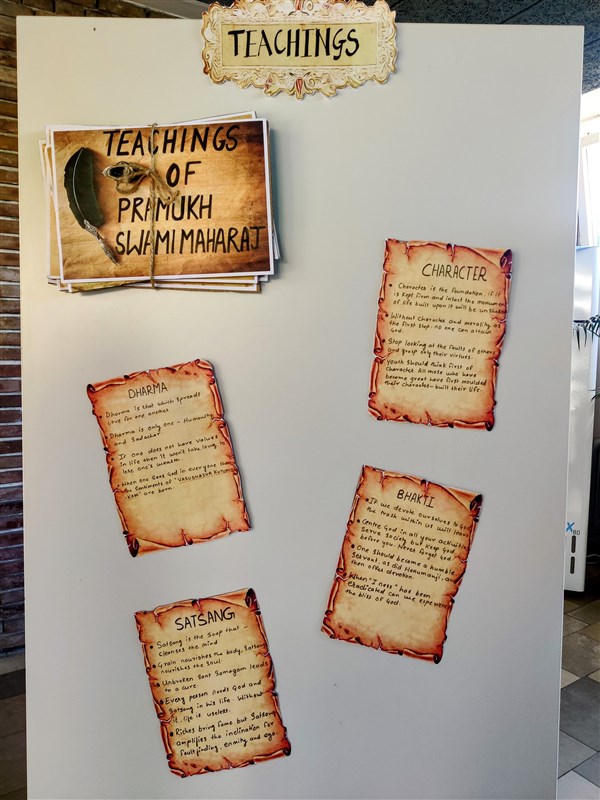 TEACHINGS
TEACHINGS
OF
PRAMUKH
SWAMI MAHARAJ
CHARACTER
Character is the foundation, if it
is kept firm and intact the monument
of life built upon it will be
Without character and morality as
the first step, no one can attain
God.
Stop looking at the faults of others
and grasp only their virtues.
youth should think first of
character. All those who have
become great have first moulded
their character - built their life
DHARMA
Dharma is that which spreads
love for one another
Dharma is only one - Humanity
and Sadachar
If one does not have values
in life then it won't take long to
lose one's wealth.
When one sees God in everyone then
the sentiments of 'VASUDHAIVA
KAM' are born.
BHAKTI
If we devote ourselves to God
the trash within us will leave
Centre God in all your activities
Serve society but keep God
before you. Never forget God
One should become a humble
servant, as did Hanumanji, and
then offer devotion.
When "I ness" has been
eradicated can we experience
the bliss of God.
SATSANG
Satsang is the soap that -
cleanses the mind
Grain nourishes the body, Satsang
nourishes the soul.
Unbroken Sant Samagam leads
to a cure.
Every person needs God and
Satsang in his life. Without
it, life is useless.
Riches bring fame but Satsang
amplifies the inclination for
faultfinding, enmity and ego.
X